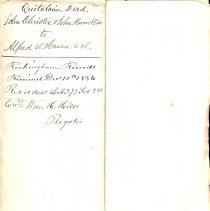 Quitclaim Deed.
John Christie & John Hamilton
to
Alfred W. Haven & al.
Rockingham Records
Received Decr 10th 1836
Recorded Lib 273 Fol 235
Exd Wm H. Hills
Register